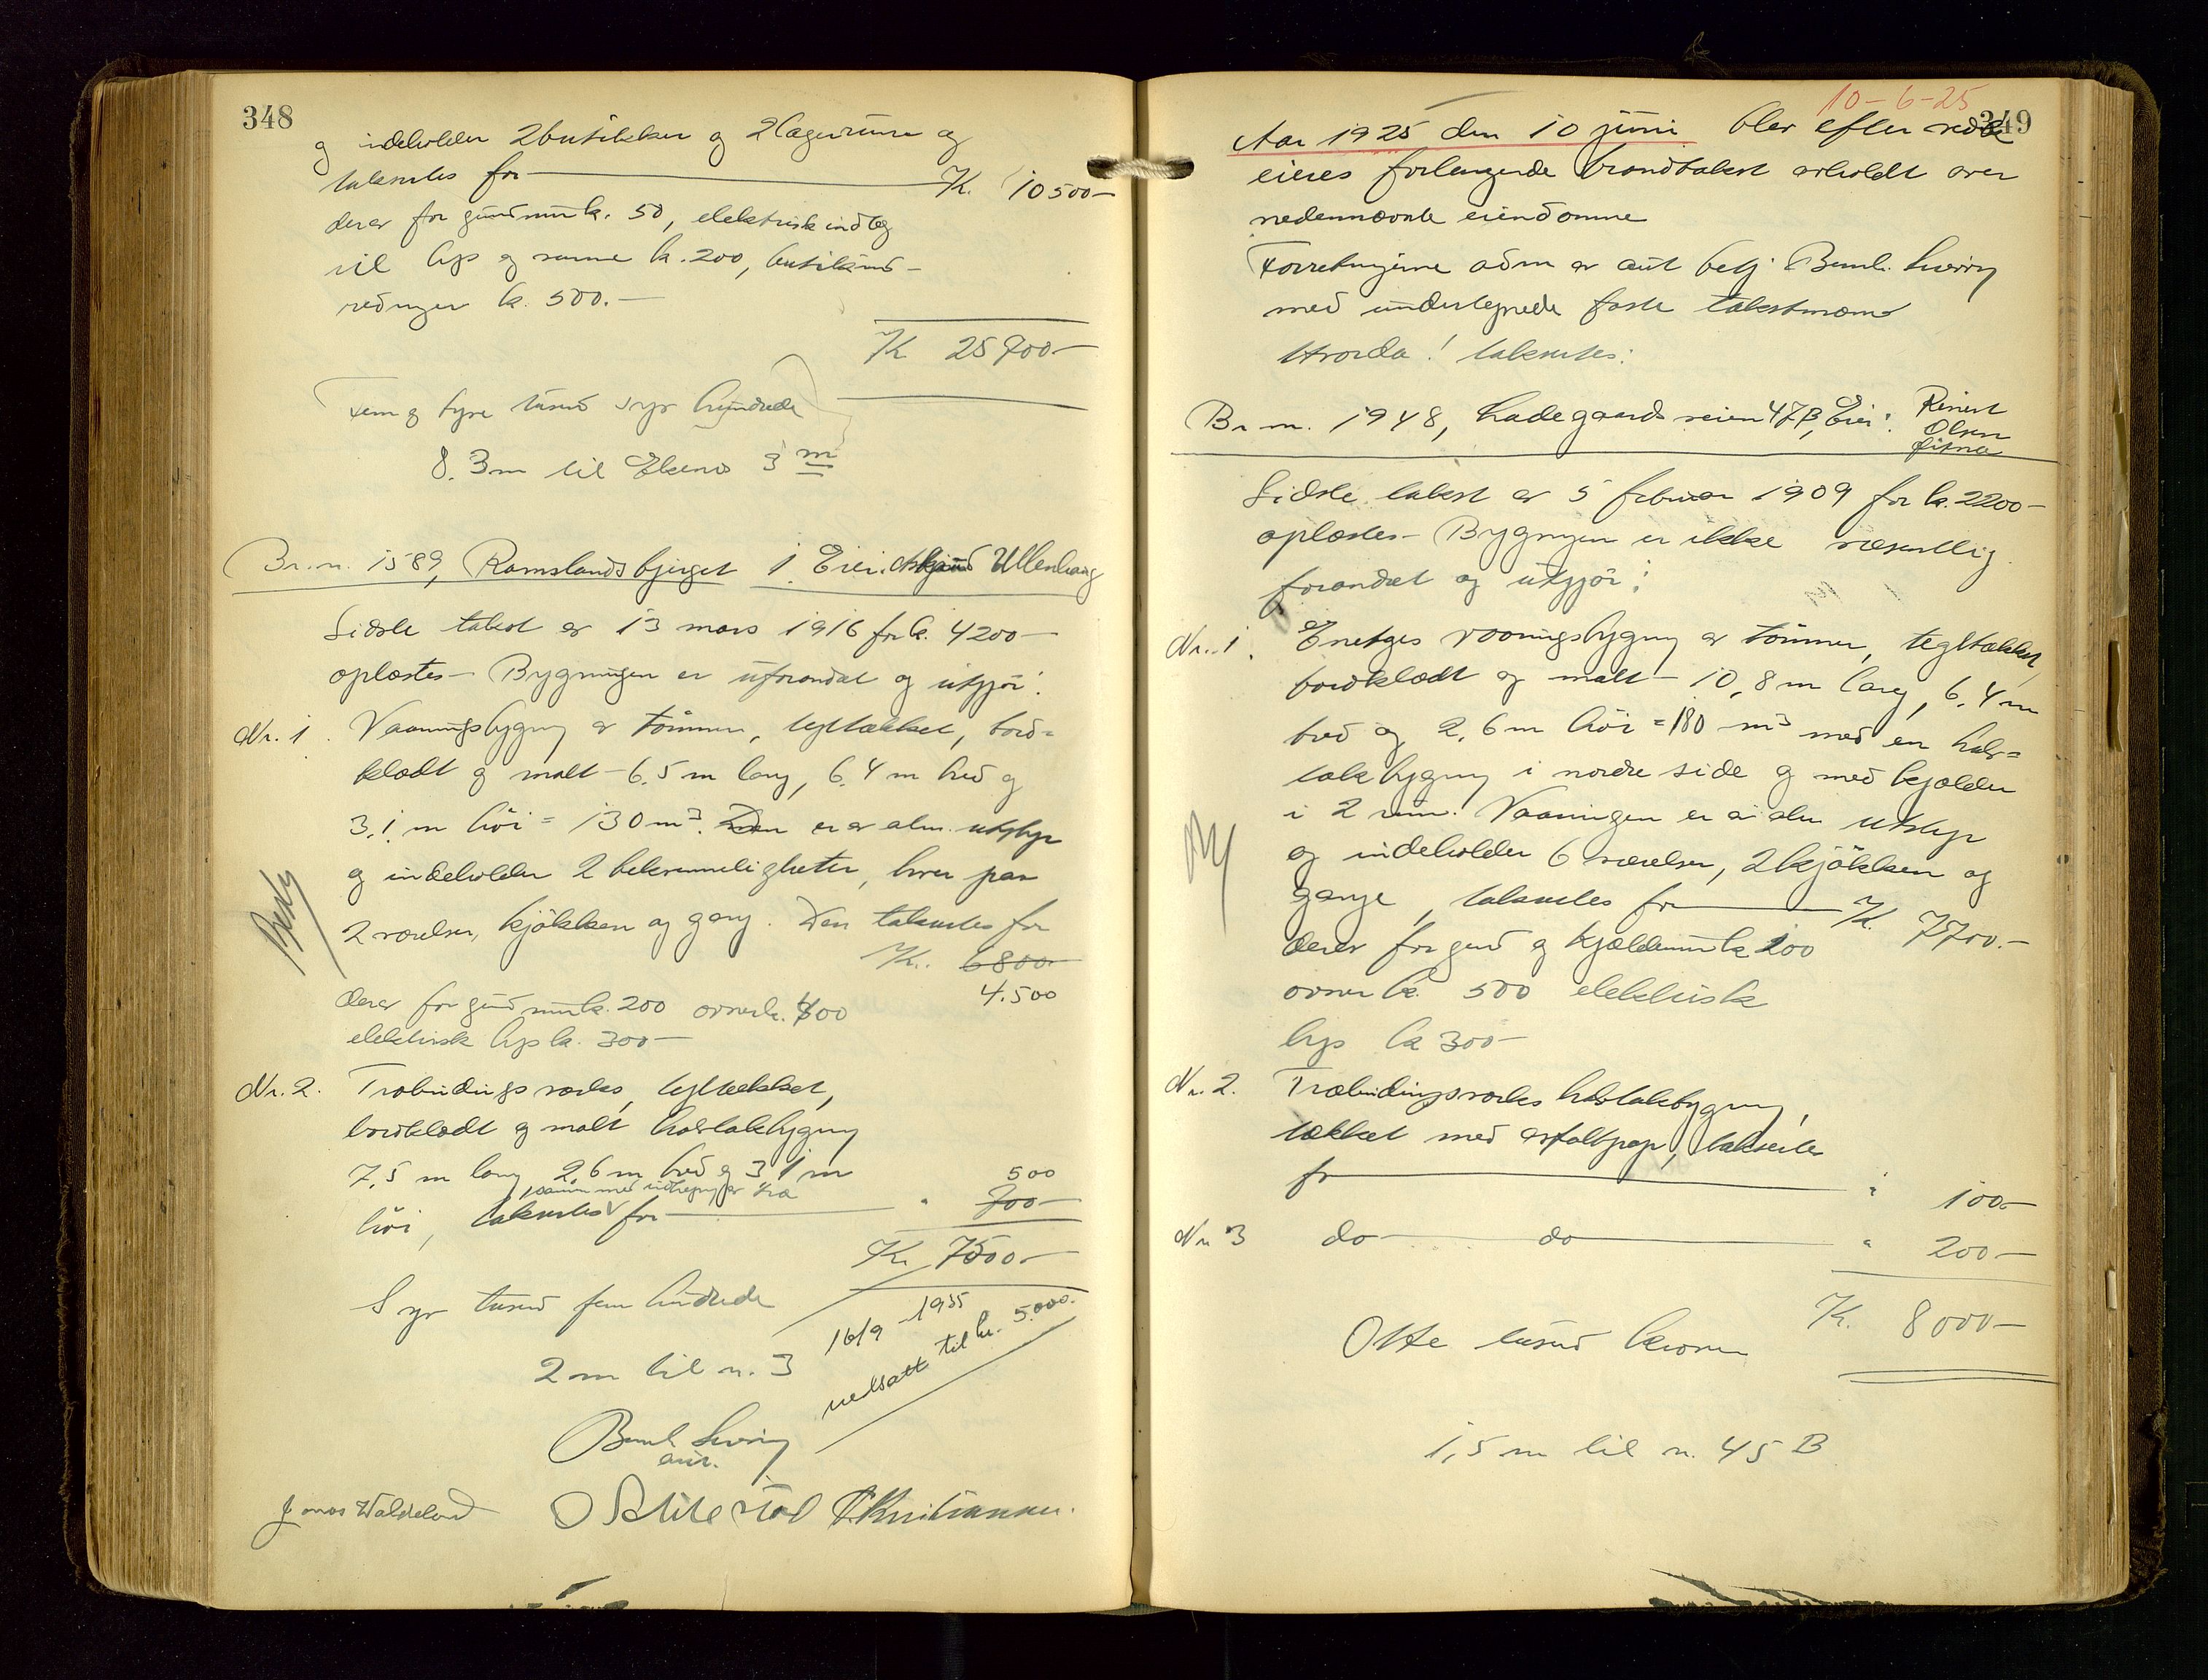 348
og indeholder 2 butikker og 2 lagerrume og
takseres for Kr. 10500-
derav for grundmur k. 50, elektrisk indlæg
til lys og varme k. 200, butikind-
redninger k. 500.-
Kr 25700-
Fem og tyve tusind syv hundrede
8.3m til Ekenes 3 m
Br. nr. 1589, Ramslandsbjerget 1. Eier: Ullenhaug
Sidste takst av 13 mars 1916 for k. 4200-
oplæstes- Bygningen er uforandret og utgjør:
Nr. 1. Vaaningsbygning av tømmer, tegltækket, bord-
klædt og malt - 6,5 m lang, 6,4 m bred og
3,1 m høi = 130 m³. Den er av alm. utstyr
og indeholder 2 bekvemmeligheter, hver paa
2 værelser, kjøkken og gang. Den takseres for
Kr. 6800-
4.500
derav for grundmur k. 200 ovner k. 400
elektrisk lys k. 300-
Nr. 2. Træbindingsverks, tegltækket,
bordklædt og malt halvtakbygning
7,5 m lang 2,6 m bred og 3,1 m
samm med indhegning av træ
høi, takseres for " 700-
500
Kr. 7500.-
Syv tusind fem hundrede
16/9 -1935
nedsatt til kr. 5.000.-
2 m til nr. 3
Bernh. Sverring
aut.
Jonas Waldeland O Skitestad Kristiansen.
10-6-25
349
Aar 1925 den 10 juni blev efter vedk
eieres forlangende brandtakst avholdt over
nedennævnte eiendomme
Forretningerne adm av aut betj. Bernh. Sverring
med undertegnede faste takstmænd
Hvorda! takseres:
Br nr. 1948, Ladegaardsveien 47B, Eier: Reinert
Olsen
Sidste takst av 5 februar 1909 for k. 2200-
oplæstes- Bygningen er ikke væsentlig
forandret og utgjør:
Nr. 1. Enetages vaaningsbygning av tømmer, tegltækket,
bordklædt og malt - 10,8 m lang, 6,4 m
bred og 2,6 m høi = 180 m³ med en halv-
takbygning i nordre side og med kjælder
i 2 rum. Vaaningen er av alm utstyr
og indeholder 6 værelser, 2 kjøkken og
gange, takseres for Kr. 7700.-
derav for grund og kjældermur k 200
ovner k. 500 elektrisk
lys k 300-
Nr. 2. Træbindingsverks halvtakbygning,
tækket med asfaltpap, takseres
for " 100-
Nr 3 do do " 200-
Kr. 8000-
Otte tusind kroner
1,5 m til nr. 45 B